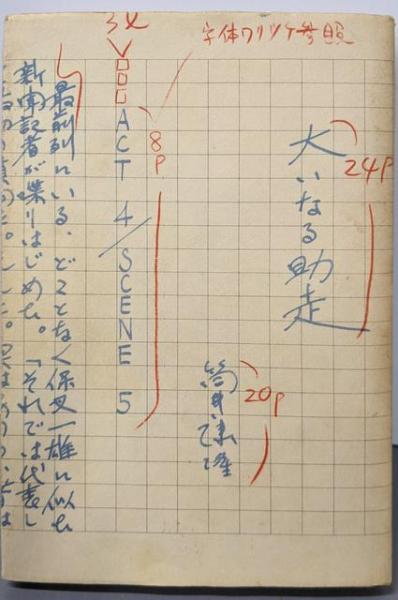 大いなる助走
24P
筒井康隆
20P
字体ワリツケ参照
ACT 4/SCENE 5
8P
最前列にいる、どことなく保叉一雄に似た
新聞記者が喋りはじめた。「それでは代表し